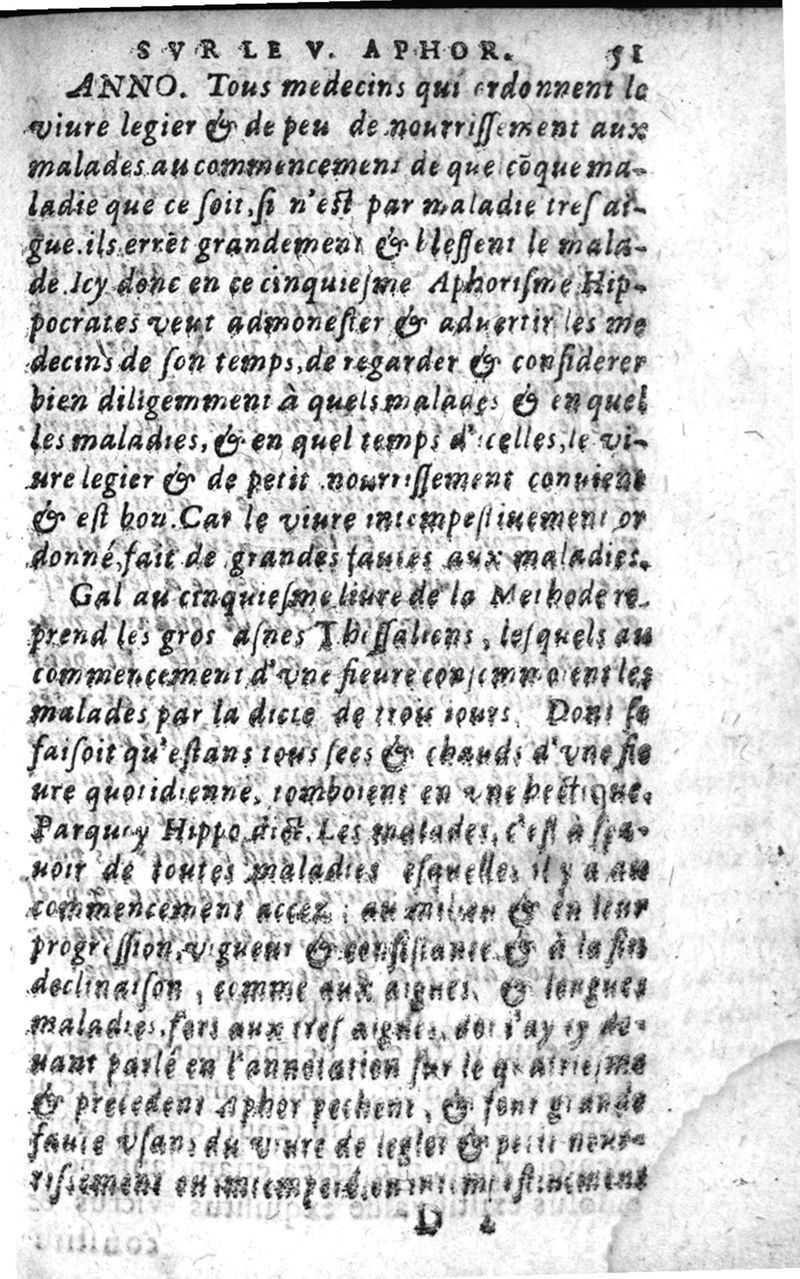 SVR LE V. APHOR. 51
ANNO. Tous medecins qui ordonnent le
viure legier & de peu de nourrissement aux
malades au commencement de que cõque ma-
ladie que ce soit, si n'est par maladie tres ai-
gue, ils errẽt grandement & blessent le mala-
de. Icy donc en ce cinquiesme Aphorisme Hip-
pocrates veut admonester & aduertir les me
decins de son temps, de regarder & considerer
bien diligemment à quels malades & en quel
les maladies, & en quel temps d'icelles, le vi-
ure legier & de petit nourrissement conuient
& est bon. Car le viure intempestiuement or
donné, fait de grandes fautes aux maladies.
Gal au cinquiesme liure de la Methode re-
prend les gros asnes Thessaliens, lesquels au
commencement d'vne fieure consommoient les
malades par la diete de trou iours. Dont se
faisoit qu'estans tous secs & chauds d'vne fie
ure quotidienne, tomboient en vne hectique.
Parquoy Hippo. dict. Les malades, c'est à sça-
uoir de toutes maladies esquelles il y a au
commencement accez, au milieu & en leur
progression, vigueur & consistance & à la fin
declinaison, comme aux aigues, & longues
maladies, fors aux tres aigues, dot i'ay cy de-
uant parlé en l'annotation sur le quatriesme
& precedent Aphor pechent, & font grande
faute vsans du viure de legier & petit nour-
rissement en intemperé, en intempestiuement
D